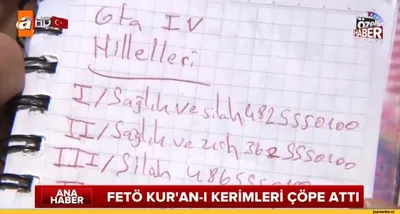 atv
HD
ÖZEL
HABER
Gta IV
Hilleleri
I/Sağlık ve silah 482 555 0100
II/Sağlık ve zırh 362 555 0100
III/Silah 486 555 0100
ANA
HABER
FETÖ KUR'AN-I KERİMLERİ ÇÖPE ATTI